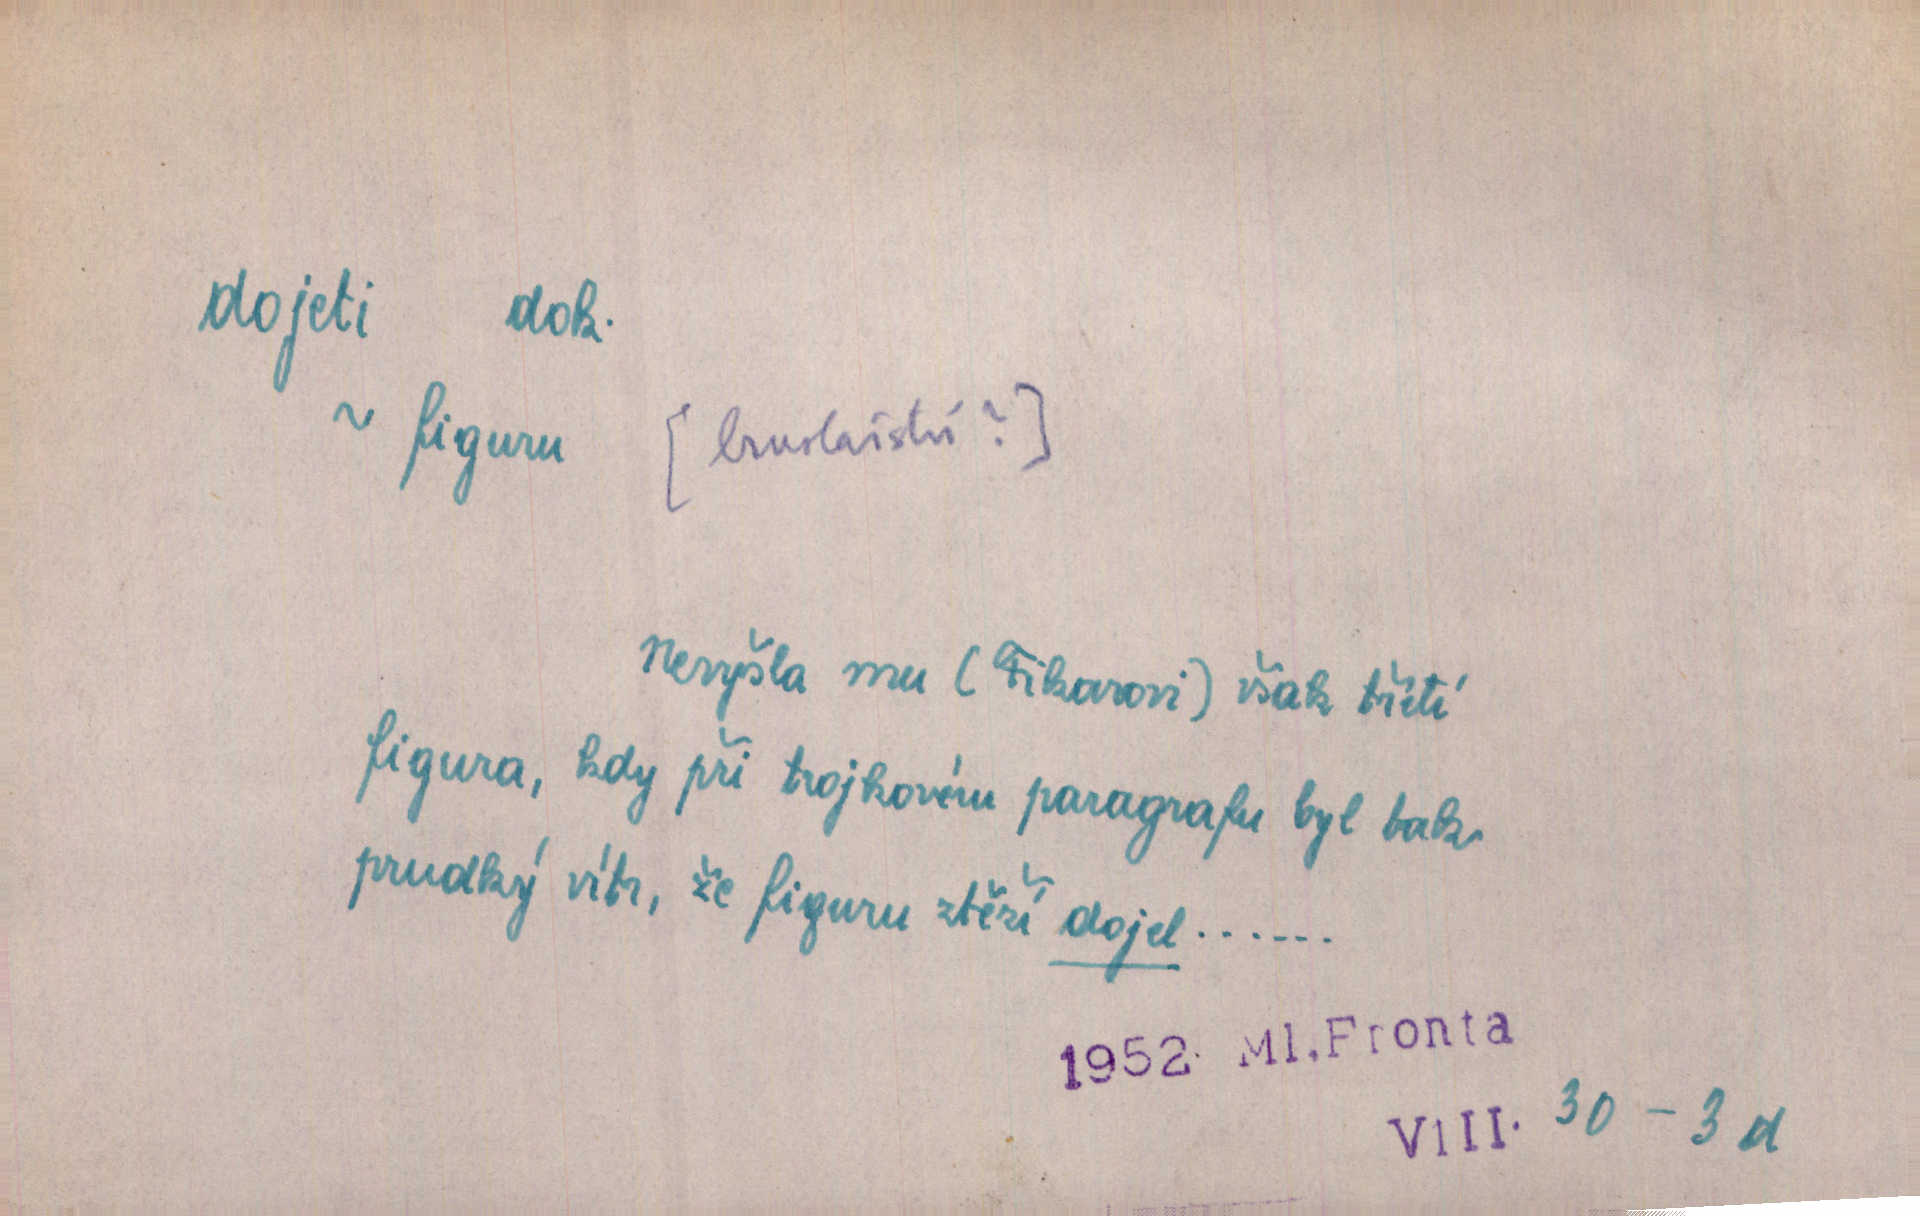 dojeti dok.
~ figuru [bruslařství?]
Nevyšla mu (Fikarovi) však třetí
figura, kdy při trojkovém paragrafu byl tak
prudký vítr, že figuru ztěží dojel.......
1952 Ml.Fronta
VIII. 30 - 3 d